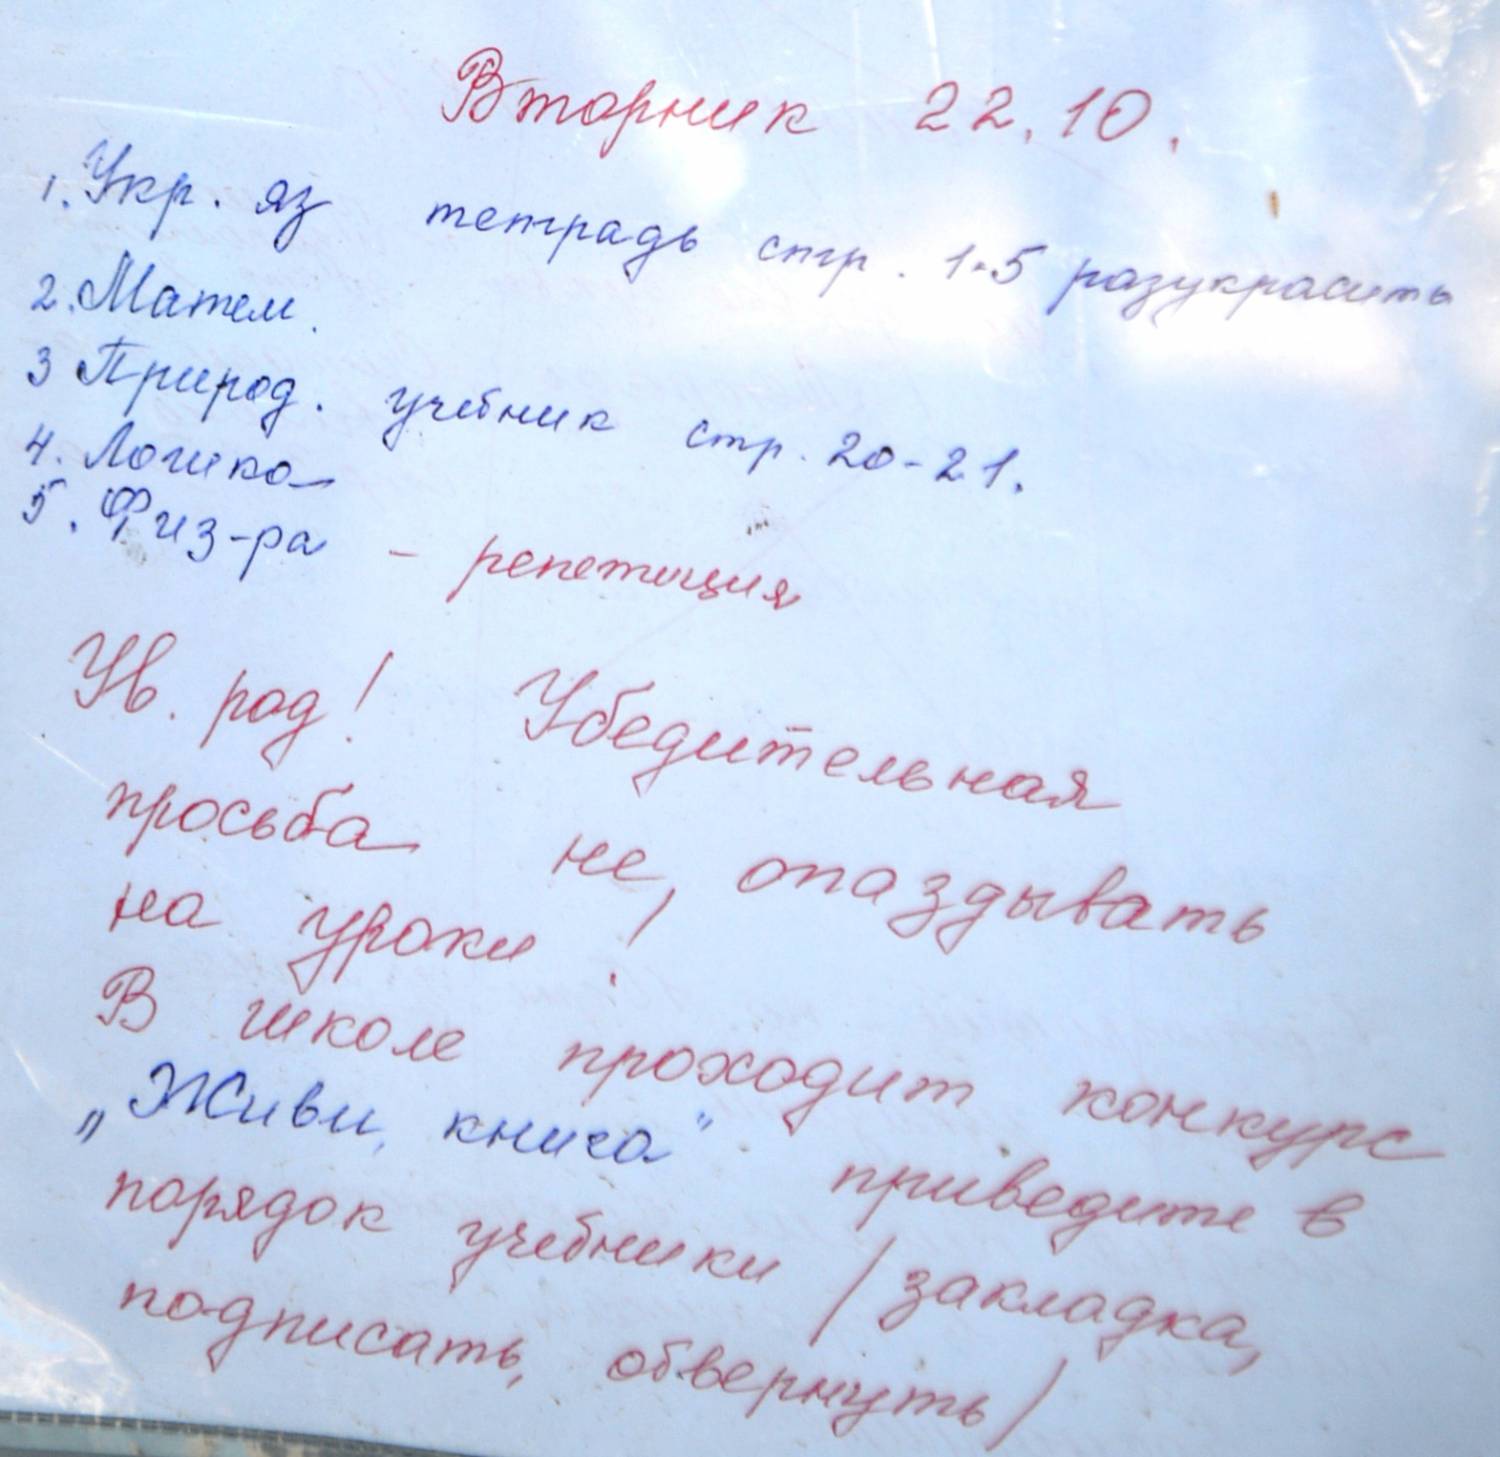 Вторник 22.10.
1. Укр. яз тетрадь стр. 1-5 разукрасить
2. Матем.
3 Природ. учебник стр. 20-21.
4. Логика
5. Физ-ра - репетиция
Ув. род! Убедительная
просьба не опаздывать
на уроки!
В школе проходит конкурс
„Живи, книга" приведите в
порядок учебники /закладка,
подписать, обвернуть/